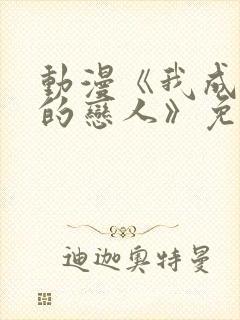 動漫《我成
的戀人》免
迪迦奧特曼